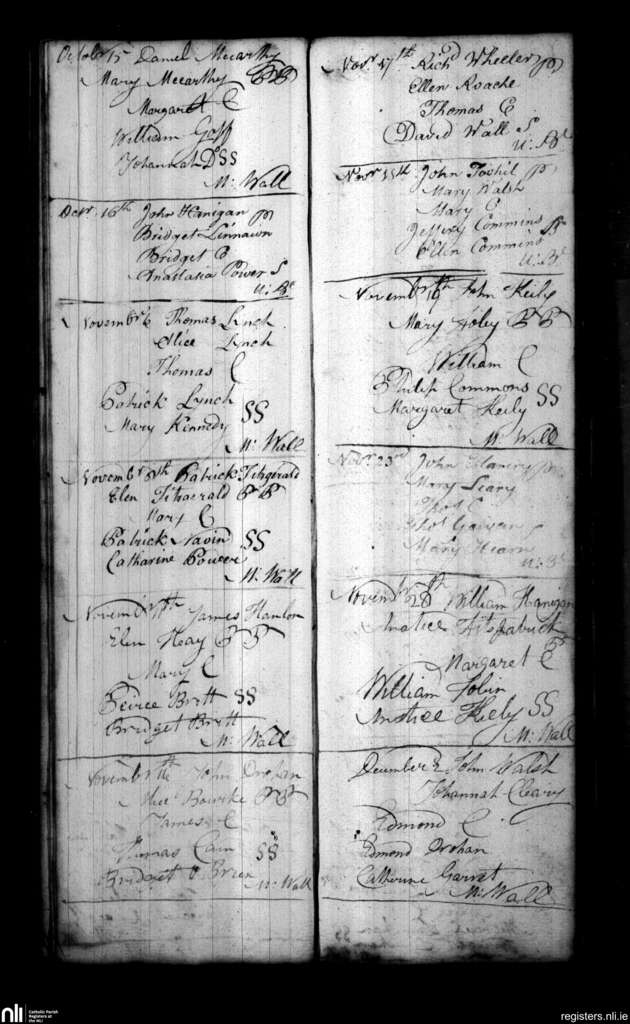 October 15 Daniel Mccarthy
Mary Mccarthy PP
Margaret C
William Goff
Johannah Do SS
M: Wall
Octr. 16th John Hanigan P
Bridget Linnawn
Bridget C
Anastasia Power S
Novembr 6 Thomas Lynch
Alice Lynch
Thomas C
Patrick Lynch
Mary Kennedy SS
M: Wall
Novembr 8th Patrick Fitzgerald
Elen Fitzgerald PP
Mary C
Patrick Navin SS
Catharine Power
M: Wall
Novembr James Hanlon
Elen Hoay PP
Mary C
Peirce Britt SS
Bridget Britt
M: Wall
Novembr John Orohan
Bourke PP
James C
Thomas Cain SS
Bridget O Brien
M: Wall
Novr. 17th Richd Wheeler P
Ellen Roache
Thomas C
David Wall S
Novr 18th John Toohil P
Mary Walsh
Mary C
Jeffery Commins
Ellen Commins S
Novembr 19 John Keily
Mary Foley PP
William C
Philip Commons
Margaret Keily SS
M: Wall
Novr. 23rd John
Mary Leary
Thos C
Thos
Mary Hearn
Novembr 28th William Hanigan
Anstice Fitzpatrick
Margaret C
William Tobin
Anstice Keily SS
M: Wall
December 2 John Walsh
Johannah Cleary
Edmond C
Edmond Orohan
Catherine Garret
M: Wall
nli
Catholic Parish
Registers at
the NLI
registers.nli.ie